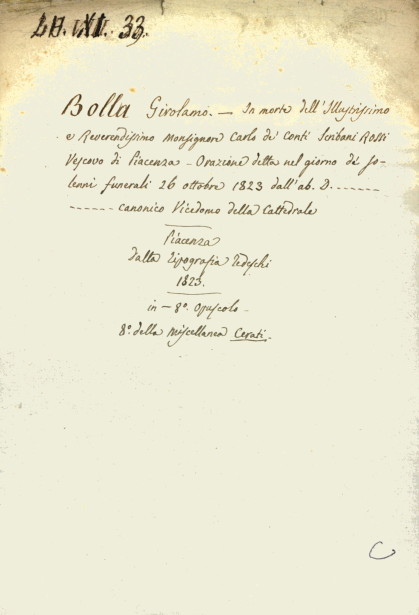 33.
Bolla Girolamo. — In morte dell'Illustrissimo
e Reverendissimo Monsignore Carlo de Conti Scribani Rossi
Vescovo di Piacenza - Orazione detta nel giorno de' so-
lenni funerali 26 ottobre 1823 dall'ab. D. -------
------- canonico Vicedomo della Cattedrale
Piacenza
dalla Tipografia Tedeschi
1823.
in - 8°. Opuscolo -
8°. della Miscellanea Cerati.
C